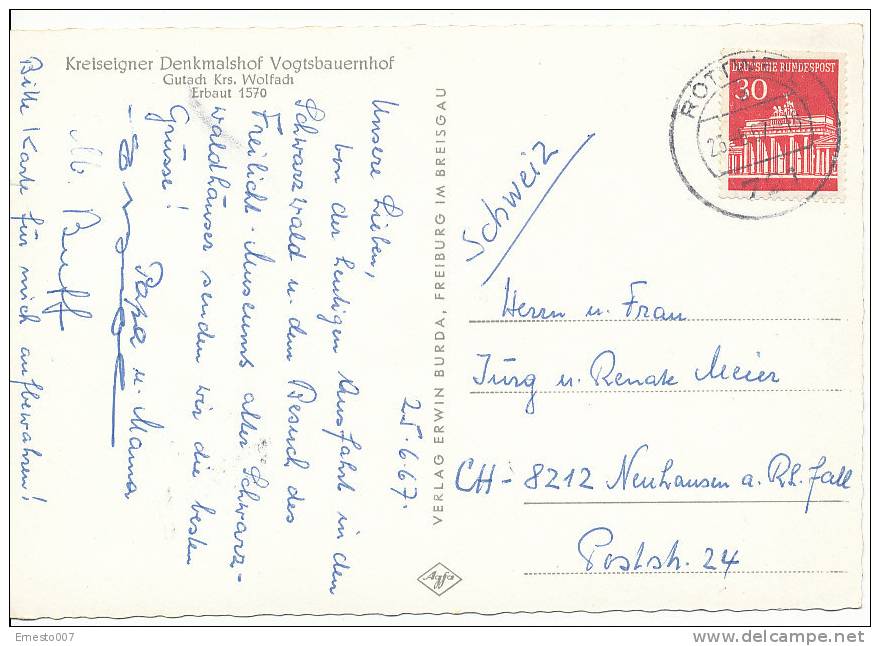 Kreiseigner Denkmalshof Vogtsbauernhof
Gutach Krs. Wolfach
Erbaut 1570
25.6.67.
Unsere Lieben,
von der heutigen Ausfahrt in den
Schwarzwald u. dem Besuch des
Freilicht-Museums alter Schwarz-
waldhäuser senden wir die besten
Grüsse!
Papa u. Mama
Bitte Karte für mich aufbewahren!
VERLAG ERWIN BURDA, FREIBURG IM BREISGAU
Agfa
DEUTSCHE BUNDESPOST
30
Schweiz
Herrn u. Frau
Jürg u. Renate Meier
CH-8212 Neuhausen a. Rh.fall
Poststr. 24
Ernesto007
delcampe.net